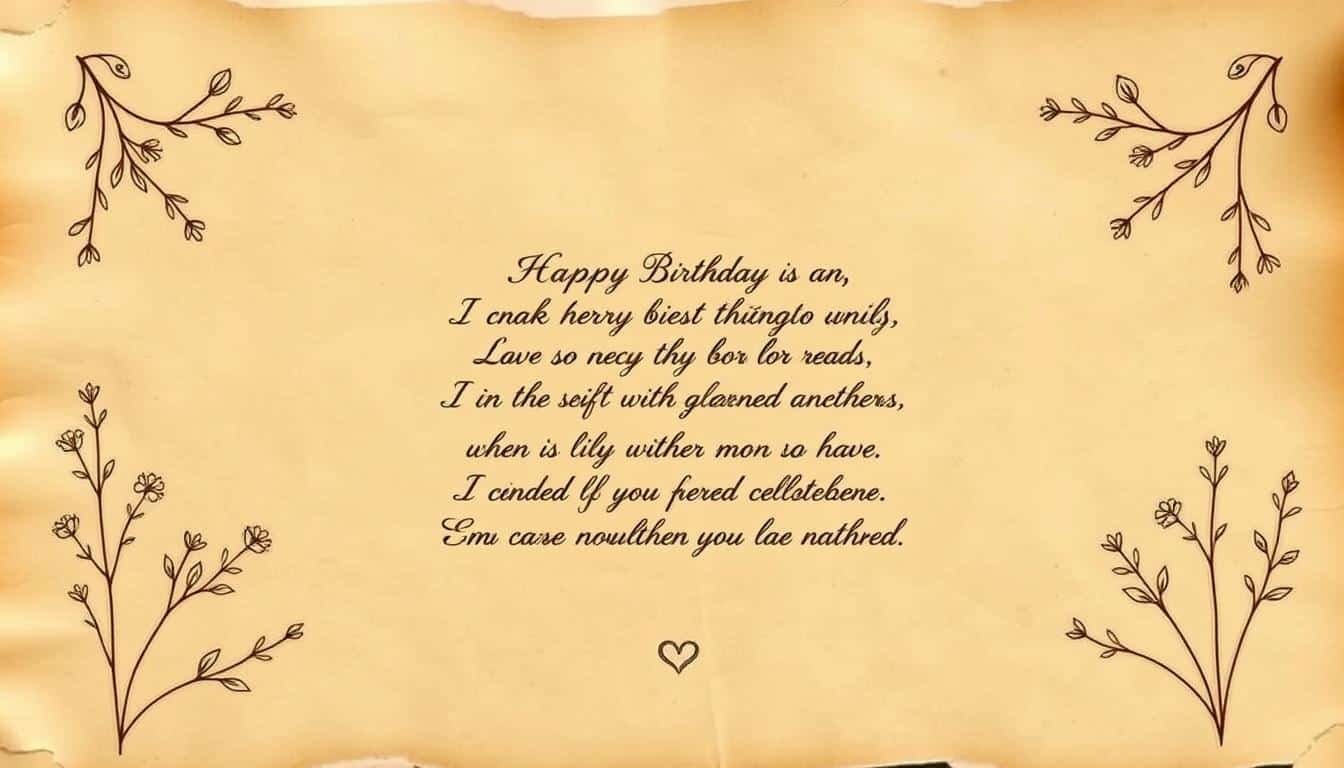 Happy Birthday is an,
I cnak herry biest thüngto wnily,
Lave so necy thy bor lor reads,
I in the seift with glaened anethers,
when is lily wither mon so have.
I cinded lf you fiered cellstebene.
Emu case noulthen you lae nathred.